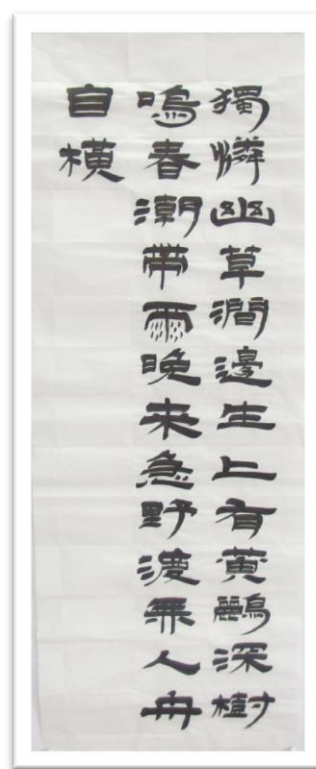 獨憐幽草澗邊生上有黃鸝深樹
鳴春潮帶雨晚來急野渡無人舟
自橫